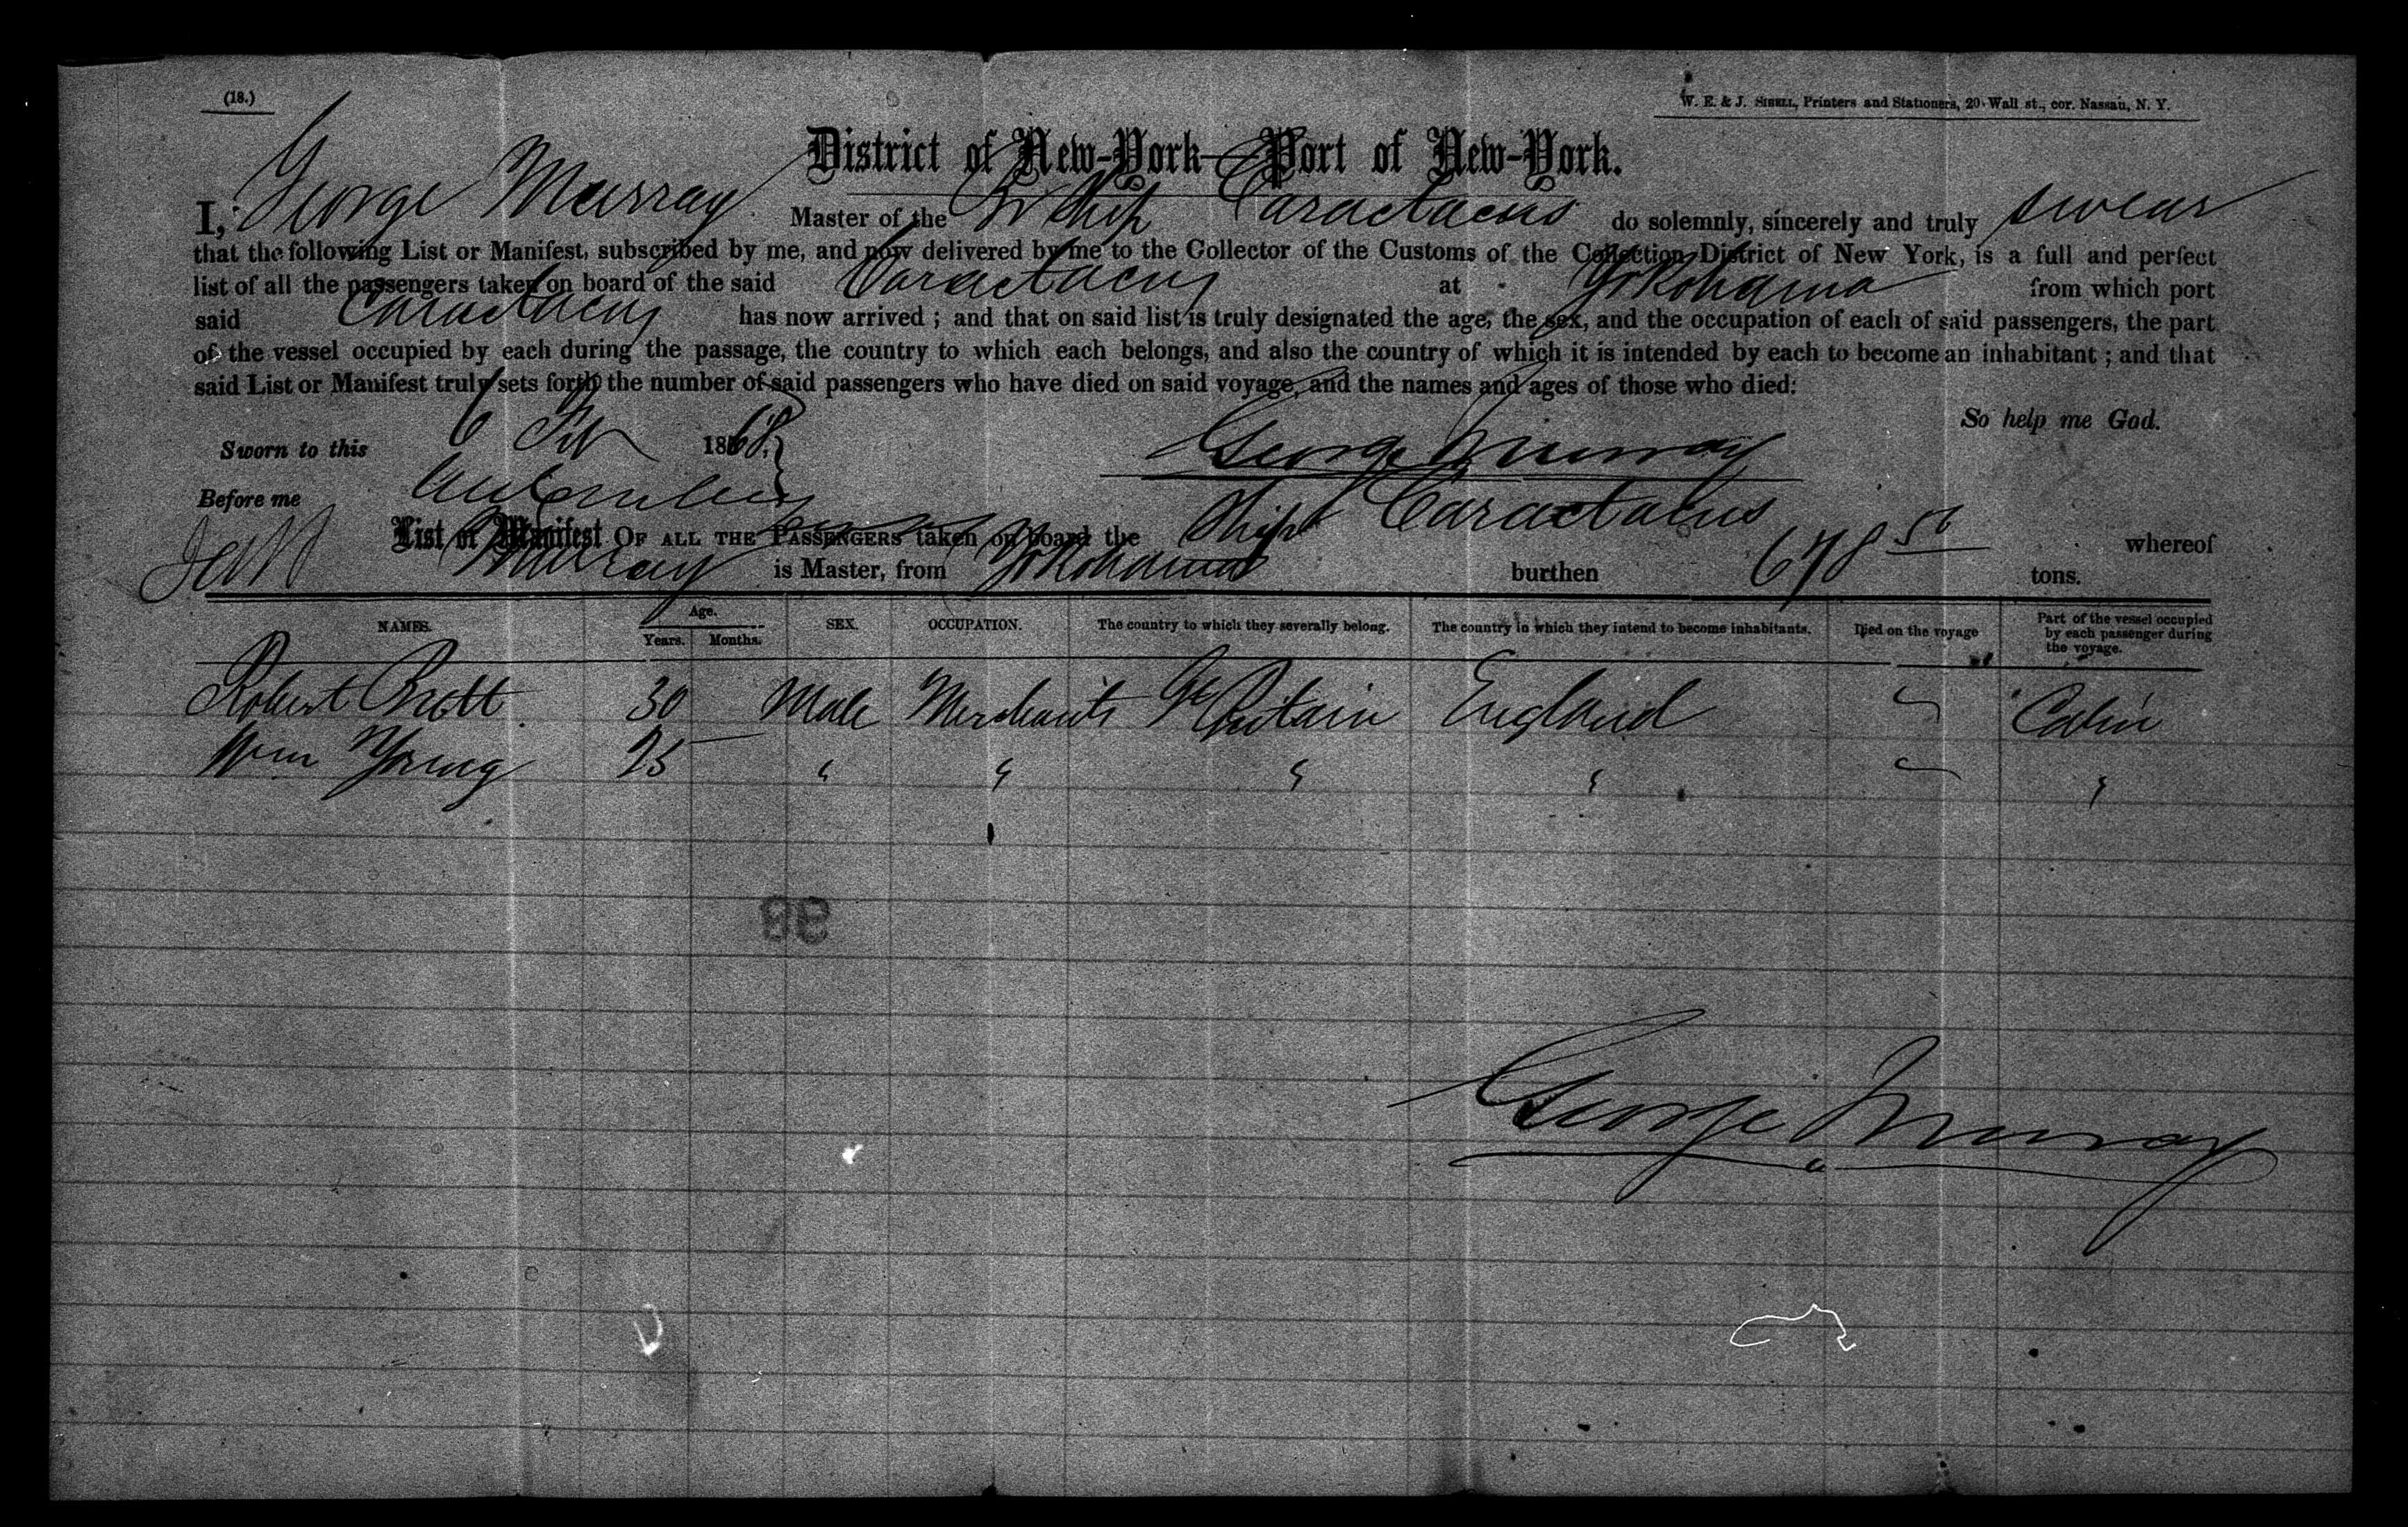 (18.)
W. E. & J. SIBELL, Printers and Stationers, 20 Wall st., cor. Nassau, N. Y.
District of New-York—Port of New-York.
I, George Murray Master of the Br Ship Caractacus do solemnly, sincerely and truly swear
that the following List or Manifest, subscribed by me, and now delivered by me to the Collector of the Customs of the Collection District of New York, is a full and perfect
list of all the passengers taken on board of the said Caractacus at Yokohama from which port
said Caractacus has now arrived ; and that on said list is truly designated the age, the sex, and the occupation of each of said passengers, the part
of the vessel occupied by each during the passage, the country to which each belongs, and also the country of which it is intended by each to become an inhabitant ; and that
said List or Manifest truly sets forth the number of said passengers who have died on said voyage, and the names and ages of those who died:
So help me God.
Sworn to this 6 Feb 1868.
George Murray
Before me
List or Manifest OF ALL THE PASSENGERS taken on board the Ship Caractacus whereof
Murray is Master, from Yokohama burthen 678 56 tons.
NAMES. Age. Years. Months. SEX. OCCUPATION. The country to which they severally belong. The country in which they intend to become inhabitants. Died on the voyage Part of the vessel occupied by each passenger during the voyage.
Robert Brett 30 Male Merchants Gt Britain England Cabin
Wm Young 25 " " " " "
98
George Murray